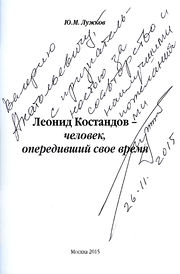 Ю.М. Лужков
Валерию
Анатольевичу,
с признатель-
ностью за
сотворчество и
наилучшими
пожеланиями
Леонид Костандов –
человек,
опередивший свое время
26.11.2015
Москва 2015